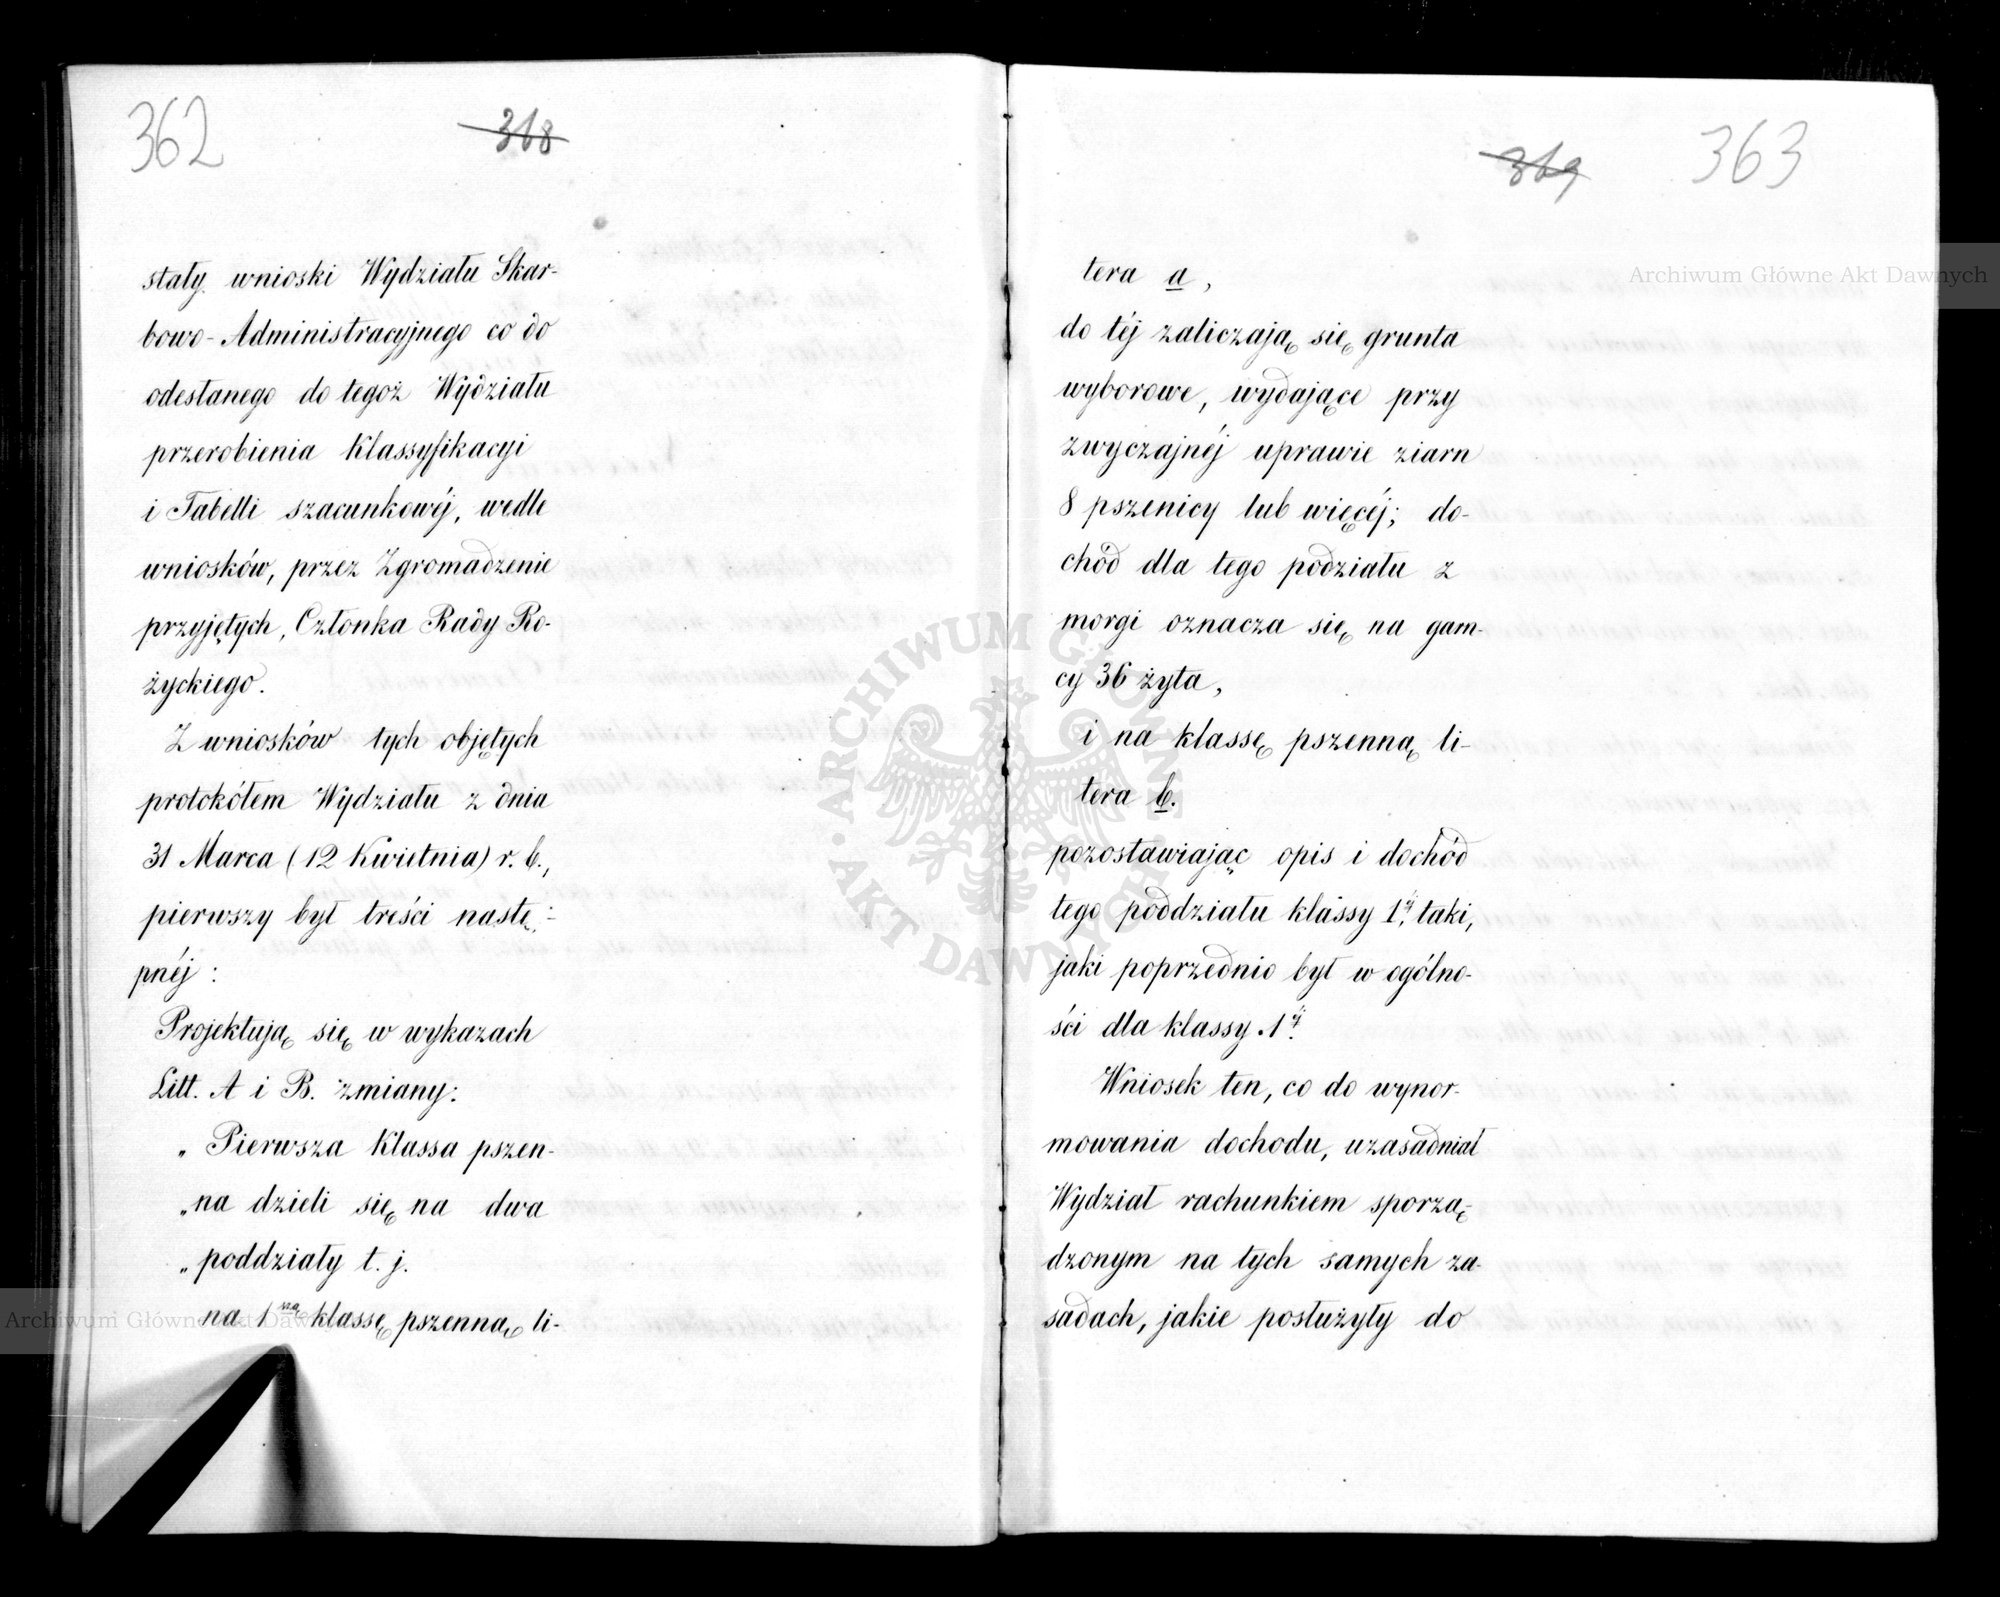 362
368
stały wnioski Wydziału Skar-
bowo-Administracyjnego co do
odesłanego do tegoż Wydziału
przerobienia Klassyfikacyi
i Tabelli szacunkowéj, wedle
wniosków, przez Zgromadzenie
przyjętych, Członka Rady Ro-
życkiego.
Z wniosków tych objętych
protokółem Wydziału z dnia
31 Marca (12 Kwietnia) r. b.,
pierwszy był treści nastę-
pnéj:
Projektują się w wykazach
Litt. A i B. zmiany:
„ Pierwsza Klassa pszen-
„ na dzieli się na dwa
„ poddziały t. j.
na 1szą klassę pszenną li-
369
363
tera a,
do téj zaliczają się grunta
wyborowe, wydające przy
zwyczajnéj uprawie ziarn
8 pszenicy lub więcéj; do-
chód dla tego podziału z
morgi oznacza się na garn-
cy 36 żyta,
i na klassę pszenną li-
tera b.
pozostawiając opis i dochód
tego poddziału klassy 1éj taki,
jaki poprzednio był w ogólno-
ści dla klassy 1éj.
Wniosek ten, co do wynor-
mowania dochodu, uzasadniał
Wydział rachunkiem sporzą-
dzonym na tych samych za-
sadach, jakie posłużyły do
Archiwum Główne Akt Dawnych
Archiwum Główne Akt Dawnych
ARCHIWUM GŁÓWNE
AKT DAWNYCH